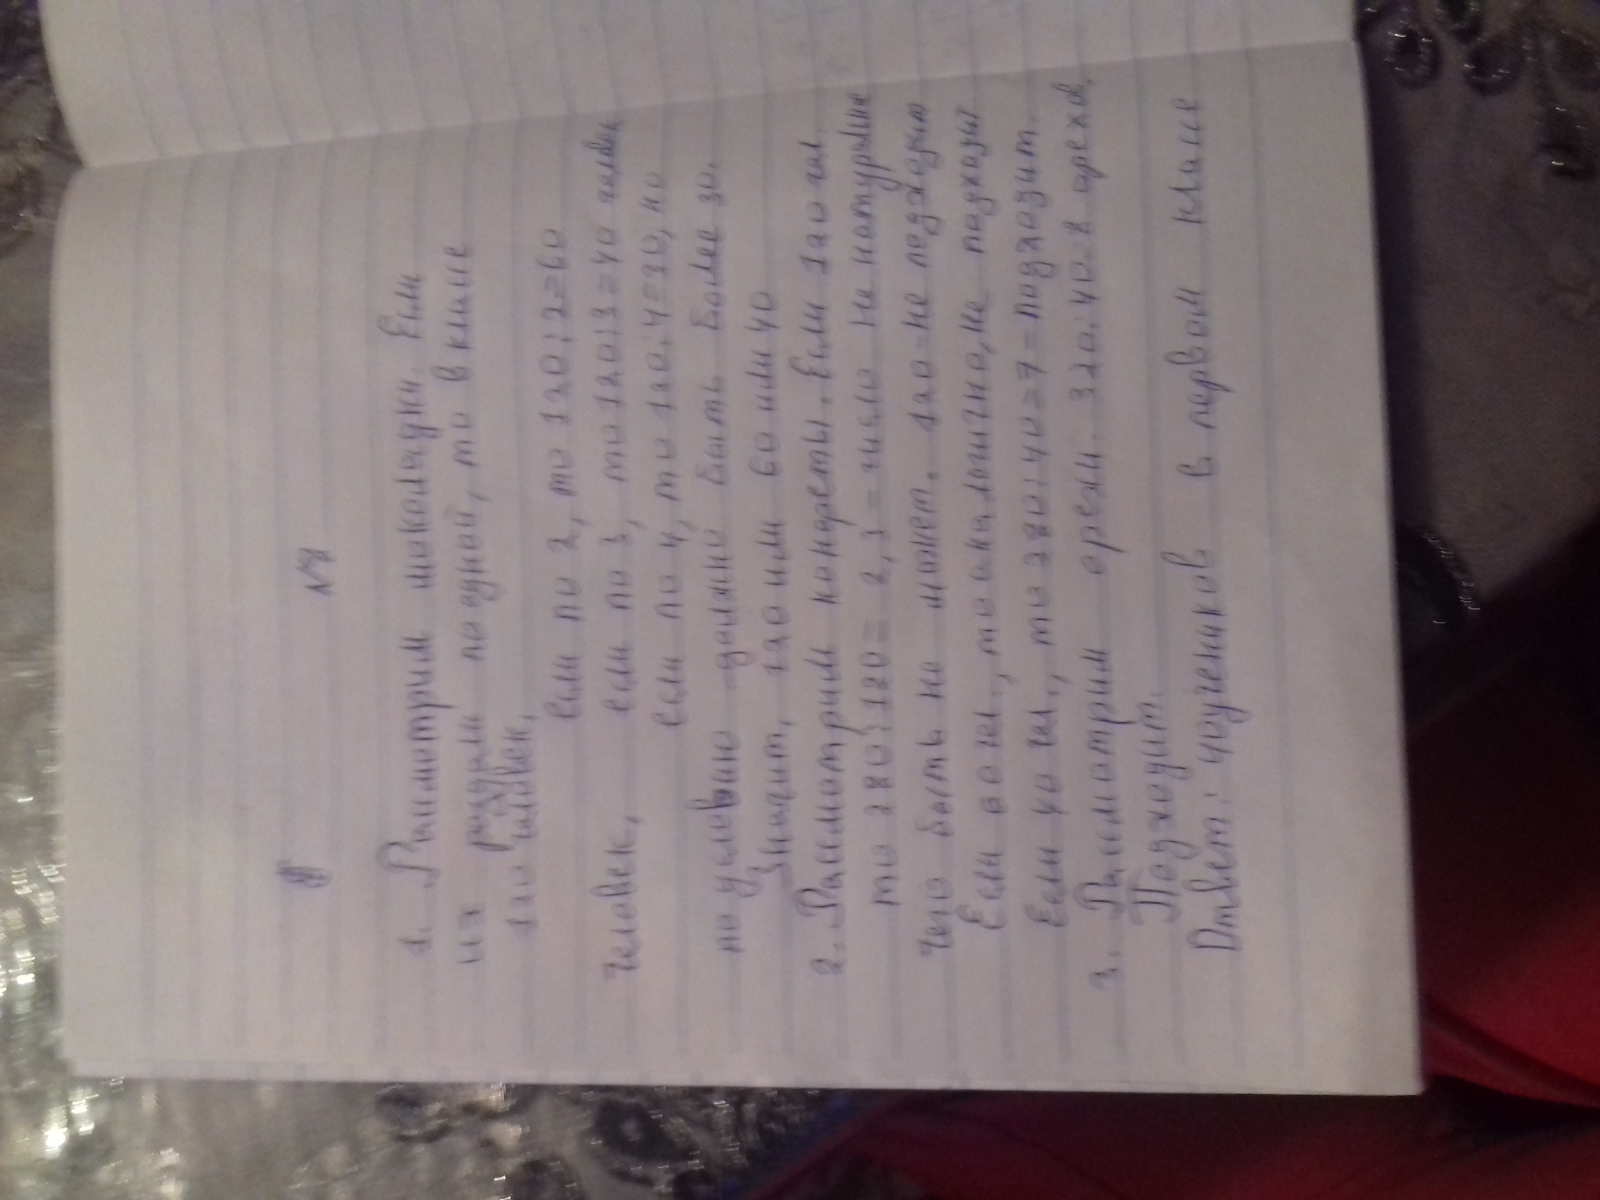 №8
1. Рассмотрим шоколадки. Если
их раздали по одной, то в классе
120 человек,
если по 2, то 120:2=60
человек, если по 3, то 120:3=40 человек
если по 4, то 120:4=30, но
по условию должно быть более 30.
Значит, 120 или 60 или 40
2. Рассмотрим конфеты. Если 120 чел.
то 280:120= 2,3 = число не натуральное
чего быть не может. 120-не подходит
Если 60 чел., то аналогично, не подходит
Если 40 чел., то 280:40=7-подходит.
3. Рассмотрим орехи. 320:40=8 орехов.
Подходит.
Ответ: 40 учеников в первом классе